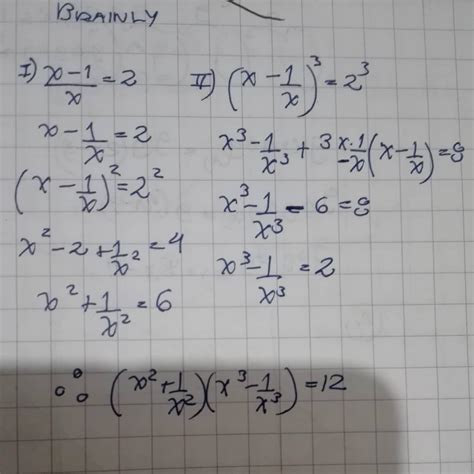 BRAINLY
I) x-1/x = 2
x - 1/x = 2
(x - 1/x)² = 2²
x² - 2 + 1/x² = 4
x² + 1/x² = 6
II) (x - 1/x)³ = 2³
x³ - 1/x³ + 3x·1/-x(x - 1/x) = 8
x³ - 1/x³ - 6 = 8
x³ - 1/x³ = 2
∴ (x² + 1/x²)(x³ - 1/x³) = 12